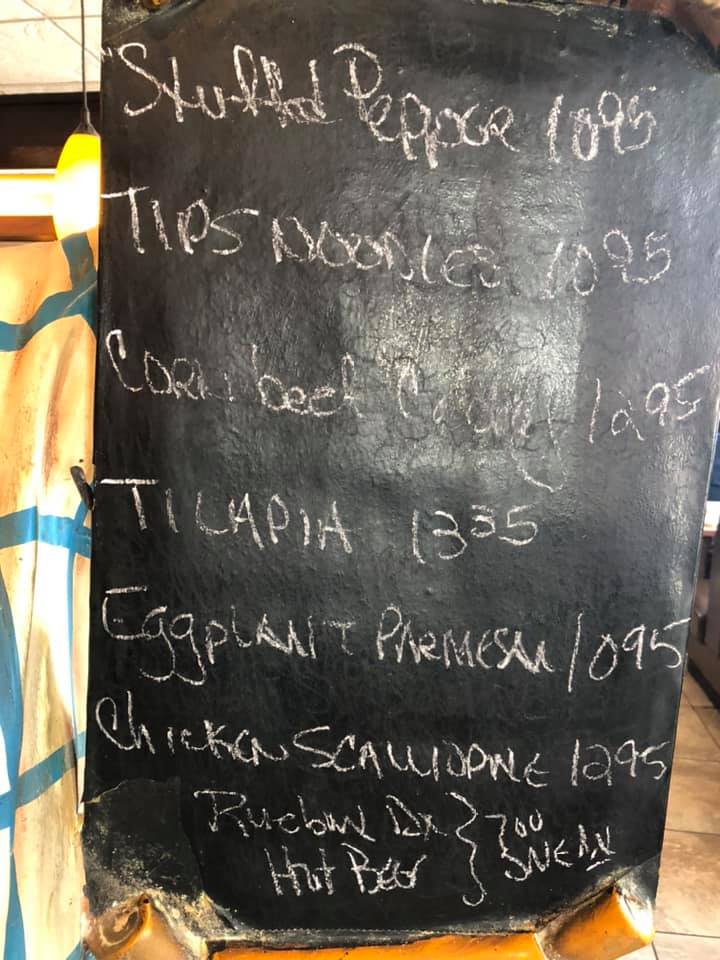 "Stuffed Pepper 1095
TIPS NOODLES 1095
Corn beef 1295
TILAPIA 1335
EggpLANT PARMESAN 1095
ChickEN SCALLIOPNE 1295
Hot Beef 700